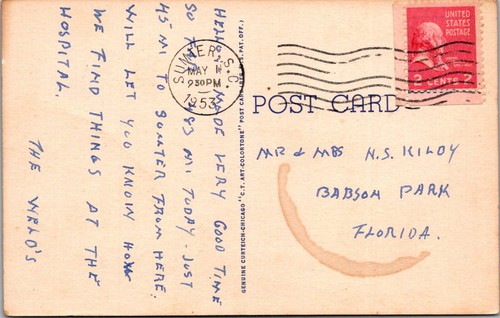 HELLO - MADE VERY GOOD TIME
SO FAR MI TODAY - JUST
45 MI TO SUMTER FROM HERE.
WILL LET YOU KNOW HOW
WE FIND THINGS AT THE
HOSPITAL.
THE WELD'S
GENUINE CURTEICH-CHICAGO "C.T. ART-COLORTONE" POST CARD (REG. U.S. PAT. OFF.)
SUMTER, S.C.
MAY
930PM
1953
UNITED
STATES
POSTAGE
2 CENTS 2
POST CARD
MR & MRS N.S. KILBY
BABSON PARK
FLORIDA.